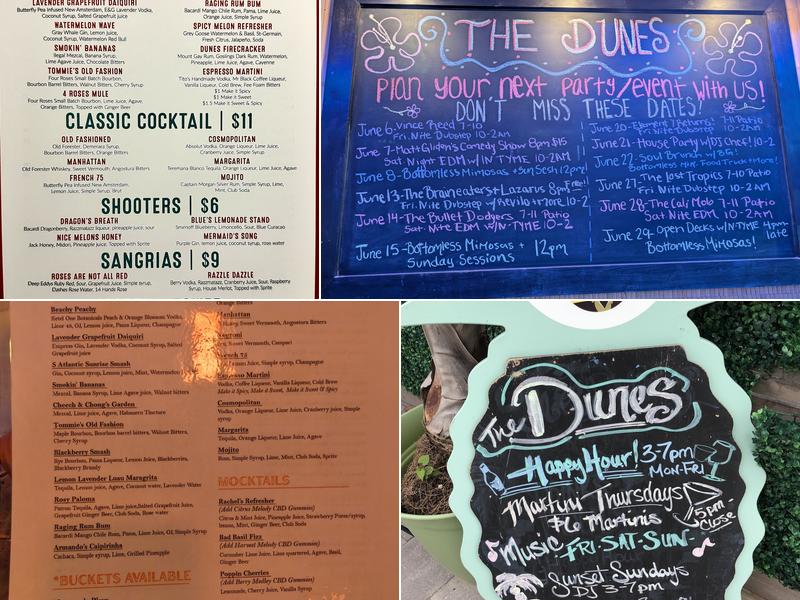 LAVENDER GRAPEFRUIT DAIQUIRI
Butterfly Pea Infused New Amsterdam, E&G Lavender Vodka,
Coconut Syrup, Salted Grapefruit juice
WATERMELON WAVE
Gray Whale Gin, Lemon juice,
Coconut Syrup, Watermelon Red Bull
SMOKIN' BANANAS
Ilegal Mezcal, Banana Syrup,
Lime Agave Juice, Chocolate Bitters
TOMMIE'S OLD FASHION
Four Roses Small Batch Bourbon,
Bourbon Barrel Bitters, Walnut Bitters, Cherry Syrup
4 ROSES MULE
Four Roses Small Batch Bourbon, Lime Juice, Agave,
Orange Bitters, Topped with Ginger Beer
RAGING RUM BUM
Bacardi Mango Chile Rum, Pama, Lime Juice,
Orange Juice, Simple Syrup
SPICY MELON REFRESHER
Grey Goose Watermelon & Basil, St-Germain,
Fresh Citrus, Jalapeño, Soda
DUNES FIRECRACKER
Mount Gay Rum, Goslings Dark Rum, Watermelon,
Pineapple, Lime Juice, Agave, Cayenne
ESPRESSO MARTINI
Tito's Handmade Vodka, Mr Black Coffee Liqueur,
Vanilla Liqueur, Cold Brew, Fee Foam Bitters
$1 Make it Spicy
$1 Make it Sweet
$1.5 Make it Sweet & Spicy
CLASSIC COCKTAIL | $11
OLD FASHIONED
Old Forester, Demerara Syrup,
Bourbon Barrel Bitters, Orange Bitters
MANHATTAN
Old Forester Whiskey, Sweet Vermouth, Angostura Bitters
FRENCH 75
Butterfly Pea Infused New Amsterdam,
Lemon Juice, Simple Syrup, Brut
COSMOPOLITAN
Absolut Vodka, Orange Liqueur, Lime Juice,
Cranberry Juice, Simple Syrup
MARGARITA
Teremana Blanco Tequila, Orange Liqueur, Lime Juice, Agave
MOJITO
Captain Morgan Silver Rum, Simple Syrup, Lime,
Mint, Club Soda
SHOOTERS | $6
DRAGON'S BREATH
Bacardi Dragonberry, Razzmatazz liqueur, pineapple juice, sour
NICE MELONS HONEY
Jack Honey, Midori, Pineapple juice, Topped with Sprite
BLUE'S LEMONADE STAND
Smirnoff Blueberry, Limoncello, Sour, Blue Curacao
MERMAID'S SONG
Purple Gin, Lemon juice, coconut syrup, rose water
SANGRIAS | $9
ROSES ARE NOT ALL RED
Deep Eddys Ruby Red, Sour, Grapefruit Juice, Simple syrup,
Dashes Rose Water, 14 Hands Rose
RAZZLE DAZZLE
Berry Vodka, Razzmatazz, Cranberry Juice, Sour, Raspberry
Syrup, House Merlot, Topped with Sprite
THE DUNES
Plan your next party/event with us!
DON'T MISS THESE DATES!
June 6-Vince Reed 7-10
Fri. Nite Dubstep 10-2AM
June 7-Matt Gliden's Comedy Show 8pm $15
Sat Night EDM W/IN TYME 10-2AM
June 8-Bottomless Mimosas + Sun Sesh 12pm!
June 13-The Draineaters + Lazarus 8pm Free!
Fri. Nite Dubstep w/Revilo + more 10-2
June 14-The Bullet Dodgers 7-11 Patio
Sat. Nite EDM W/IN-TYME 10-2
June 15-Bottomless Mimosas + 12pm
Sunday Sessions
7-11 Patio
Fri. Nite Dubstep 10-2AM
June 21-House Party w/DJ OneF! 10-2
June 22-Soul Brunch
Bottomless Mims. Food Truck + More!
June 27-The Lost Tropics 7-10 Patio
Fri. Nite Dubstep 10-2 AM
June 28-The Cali Mob 7-11 Patio
Sat Nite EDM 10-2AM
June 29-Open Decks w/IN-TYME 4pm-late
Bottomless Mimosas!
Beachy Peachy
Ketel One Botanicals Peach & Orange Blossom Vodka,
Licor 43, OJ, Lemon juice, Pama Liqueur, Champagne
Lavender Grapefruit Daiquiri
Empress Gin, Lavender Vodka, Coconut Syrup, Salted
Grapefruit juice
S Atlantic Sunrise Smash
Gin, Coconut syrup, Lemon juice, Mint, Watermelon
Smokin' Bananas
Mezcal, Banana Syrup, Lime Agave juice, Walnut bitters
Cheech & Chong's Garden
Mezcal, Lime juice, Agave, Habanero Tincture
Tommie's Old Fashion
Maple Bourbon, Bourbon barrel bitters, Walnut Bitters,
Cherry Syrup
Blackberry Smash
Rye Bourbon, Pama Liqueur, Lemon Juice, Blackberries,
Blackberry Brandy
Lemon Lavender Luau Maragrita
Tequila, Lemon juice, Agave, Coconut water, Lavender Water
Rosy Paloma
Patron Tequila, Agave, Lime juice,Salted Grapefruit Juice,
Grapefruit Ginger Beer, Club Soda, Rose water
Raging Rum Bum
Bacardi Mango Chili Rum, Pama, Lime Juice, OJ, Simple Syrup
Armando's Caipirinha
Cachaca, Simple syrup, Lime, Grilled Pineapple
*BUCKETS AVAILABLE
Orange Bitters
Manhattan
Honey, Sweet Vermouth, Angostura Bitters
Negroni
Sweet Vermouth, Campari
French 75
Lemon Juice, Simple syrup, Champagne
Espresso Martini
Vodka, Coffee Liqueur, Vanilla Liqueur, Cold Brew
Make it Spicy, Make it Sweet, Make it Sweet & Spicy
Cosmopolitan
Vodka, Orange Liqueur, Lime Juice, Cranberry juice, Simple
syrup
Margarita
Tequila, Orange Liqueur, Lime Juice, Agave
Mojito
Rum, Simple Syrup, Lime, Mint, Club Soda, Sprite
MOCKTAILS
Rachel's Refresher
(Add Citrus Melody CBD Gummies)
Citrus & Mint Juice, Pineapple Juice, Strawberry Puree/syrup,
beans, Mint, Ginger Beer, Club Soda
Bad Basil Fizz
(Add Harvest Melody CBD Gummies)
Cucumber Lime Juice, Lime quartered, Agave, Basil,
Ginger Beer
Poppin Cherries
(Add Berry Medley CBD Gummies)
Lemonade, Cherry Juice, Vanilla Syrup
The Dunes
Happy Hour! 3-7pm
MON-FRI
Martini Thursdays
$6 Martinis
5pm-
Close
Music FRI-SAT-SUN-
Sunset Sundays
DJ 3-7pm